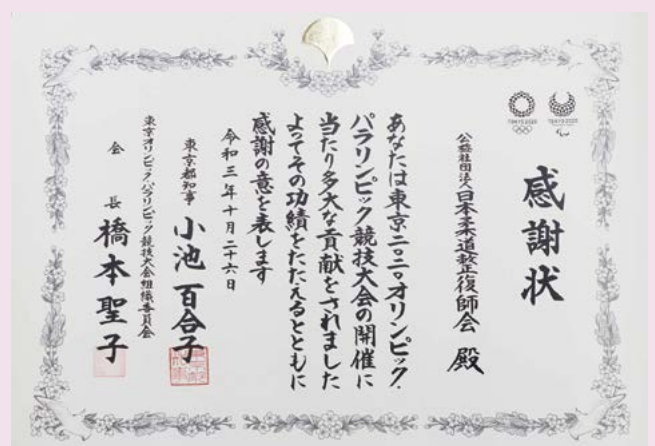 TOKYO 2020
TOKYO 2020
感謝状
公益社団法人日本柔道整復師会 殿
あなたは東京二〇二〇オリンピック・
パラリンピック競技大会の開催に
当たり多大な貢献をされました
よってその功績をたたえるとともに
感謝の意を表します
令和三年十月二十六日
東京都知事 小池百合子
東京オリンピック・パラリンピック競技大会組織委員会
会長 橋本聖子